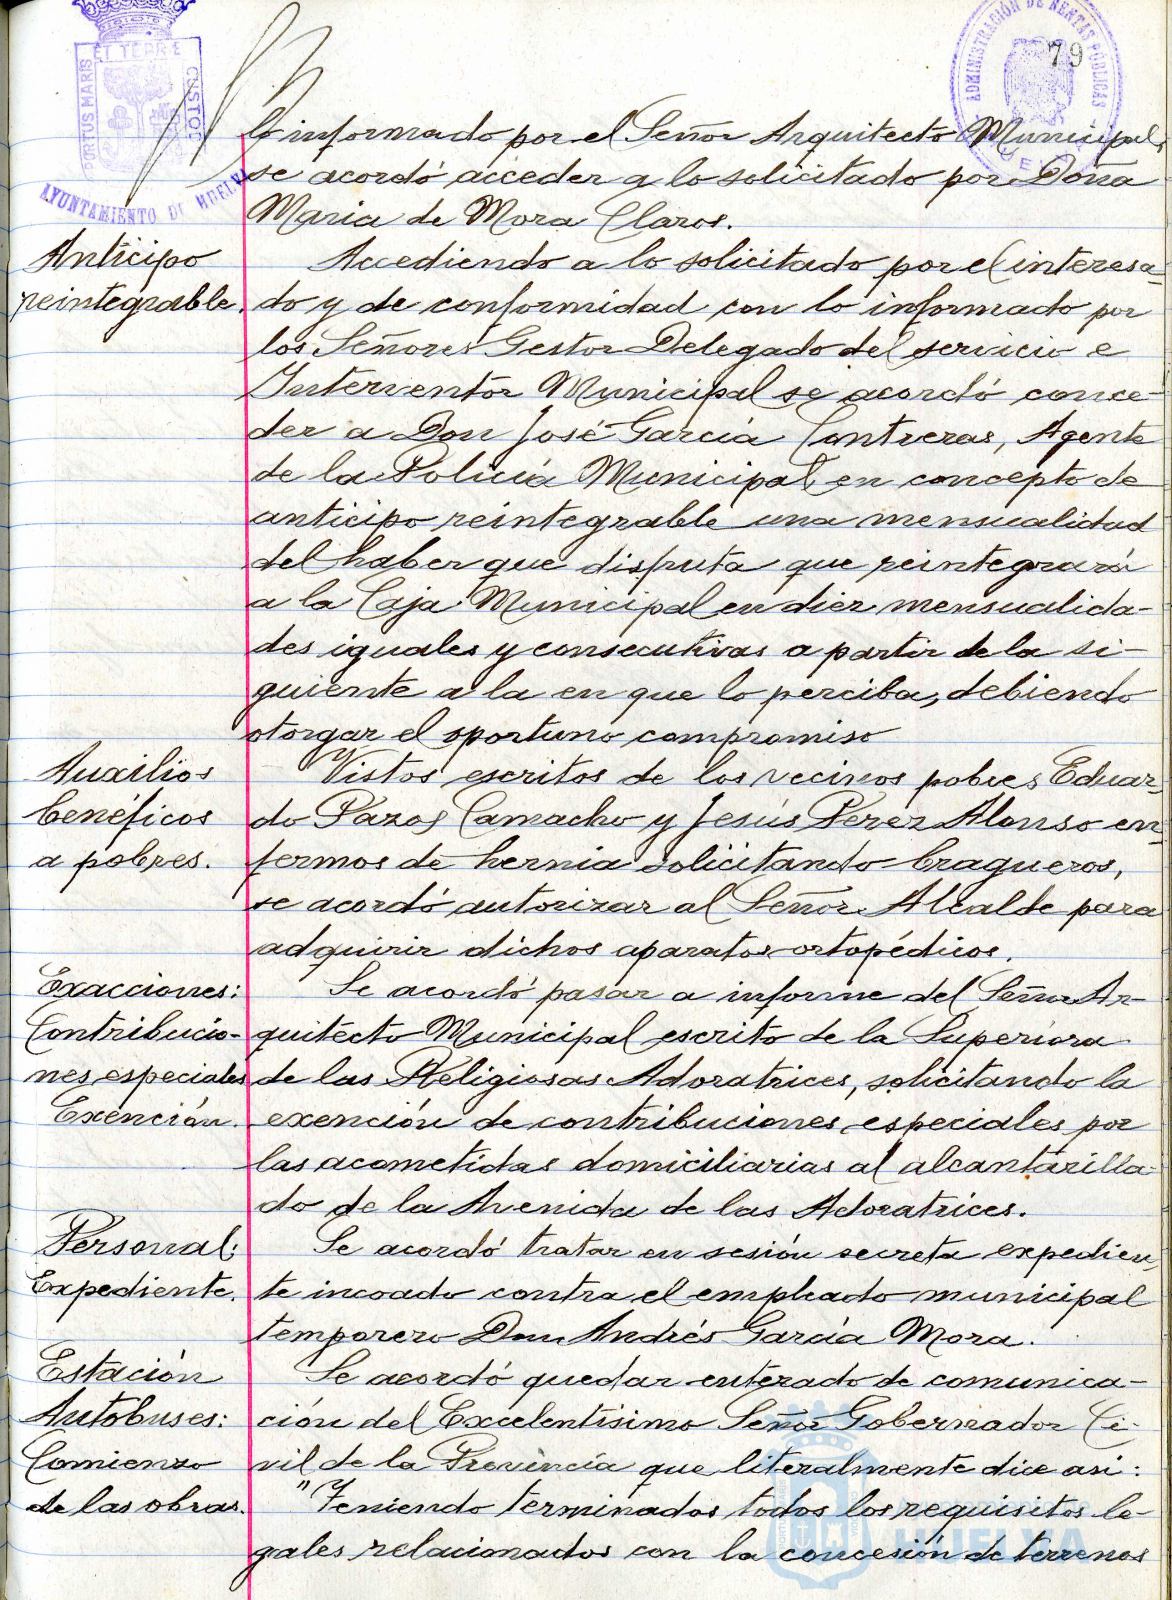 79
PORTUS MARIS ET TERRE CUSTOD
AYUNTAMIENTO DE HUELVA
ADMINISTRACIÓN DE RENTAS PÚBLICAS
lo informado por el Señor Arquitecto Municipal,
se acordó acceder a lo solicitado por Doña
Maria de Mora Claros.
Anticipo
reintegrable.
Accediendo a lo solicitado por el interesa-
do y de conformidad con lo informado por
los Señores Gestor Delegado del servicio e
Interventor Municipal se acordó conce-
der a Don José García Contreras, Agente
de la Policia Municipal en concepto de
anticipo reintegrable una mensualidad
del haber que disfruta que reintegrará
a la Caja Municipal en diez mensualida-
des iguales y consecutivas a partir de la si-
guiente a la en que lo perciba, debiendo
otorgar el oportuno compromiso
Auxilios
benéficos
a pobres.
Vistos escritos de los vecinos pobres Eduar-
do Pazos Camacho y Jesús Perez Alonso en-
fermos de hernia solicitando bragueros,
se acordó autorizar al Señor Alcalde para
adquirir dichos aparatos ortopédicos.
Exacciones:
Contribucio-
nes especiales
Exención.
Se acordó pasar a informe del Señor Ar-
quitecto Municipal escrito de la Superiora
de las Religiosas Adoratrices, solicitando la
exención de contribuciones especiales por
las acometidas domiciliarias al alcantarilla-
do de la Avenida de las Adoratrices.
Personal:
Expediente.
Se acordó tratar en sesión secreta expedien-
te incoado contra el empleado municipal
temporero Don Andrés García Mora.
Estación
Autobuses:
Comienzo
de las obras.
Se acordó quedar enterado de comunica-
ción del Excelentísimo Señor Gobernador Ci-
vil de la Provincia que literalmente dice asi:
"Teniendo terminados todos los requisitos le-
gales relacionados con la concesión de terrenos
HUELVA